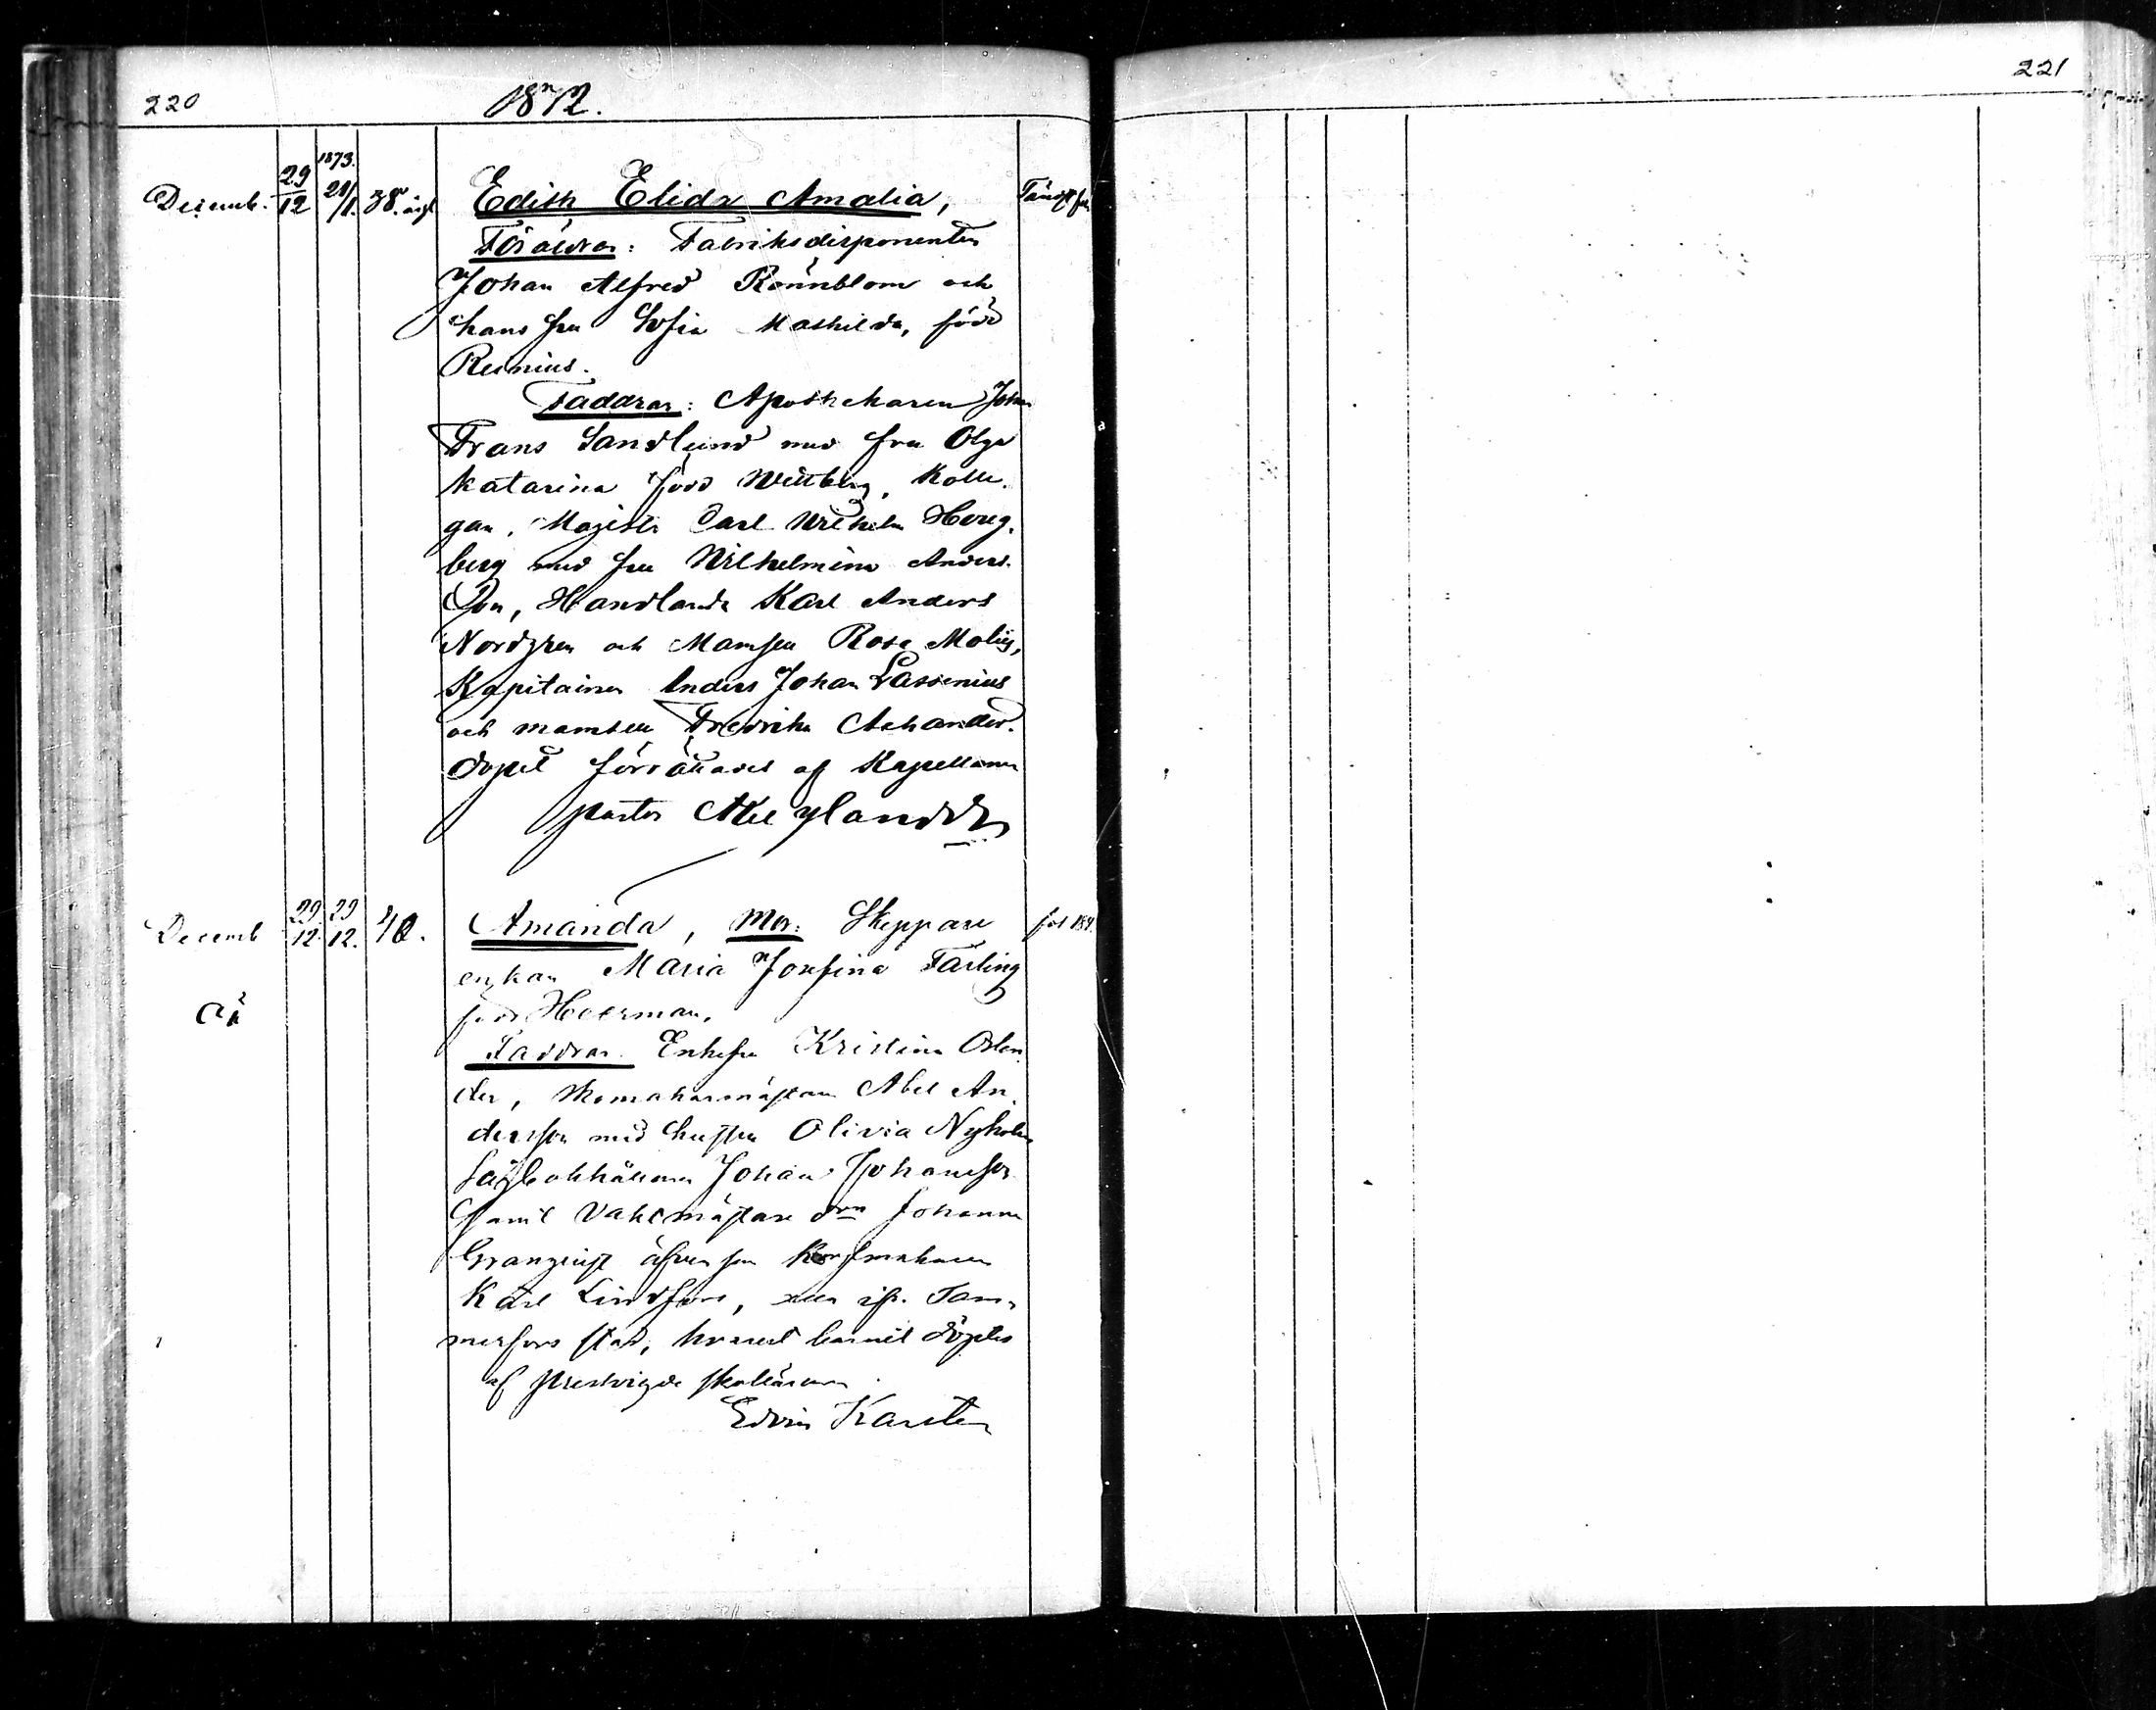 220
1872.
221
Decemb. 29/12 1873. 21/1. 38. Edith Elida Amalia,
Föräldrar: Fabriksdisponenten
Johan Alfred Rönnblom och
hans fru Sofia Mathilda, född
Rennius.
Faddrar: Apothekaren Johan
Frans Sandlund med fru Olga
Katarina född Wittberg, Kolle-
gan, Magister Carl Wilhelm Hougberg
berg med fru Wilhelmina Anders-
son, Handlanden Karl Anders
Nordgren och Mamsell Rosa Molis,
Kapitainen Anders Johan Lassenius
och mamsell Fredrika Achander.
Dopet förrättades af Kapellanen
pastor Axel Ylander
Decemb 29/12. 29/12. 40. Amanda, Mor: Skeppare fol 184.
enkan Maria Josefina Tärling
född Heerman.
Faddrar. Enkefru Kristina Oslen-
der, Abel An-
dersson med hustru Olivia Nyholm
Johan Johansson
samt Vaktmästare Johanna
Granqvist äfven som
Karl Lindfors, alla ifr. Tam-
merfors stad, hvarest barnet döptes
af prestvigde skolläraren
Edvin Karsten